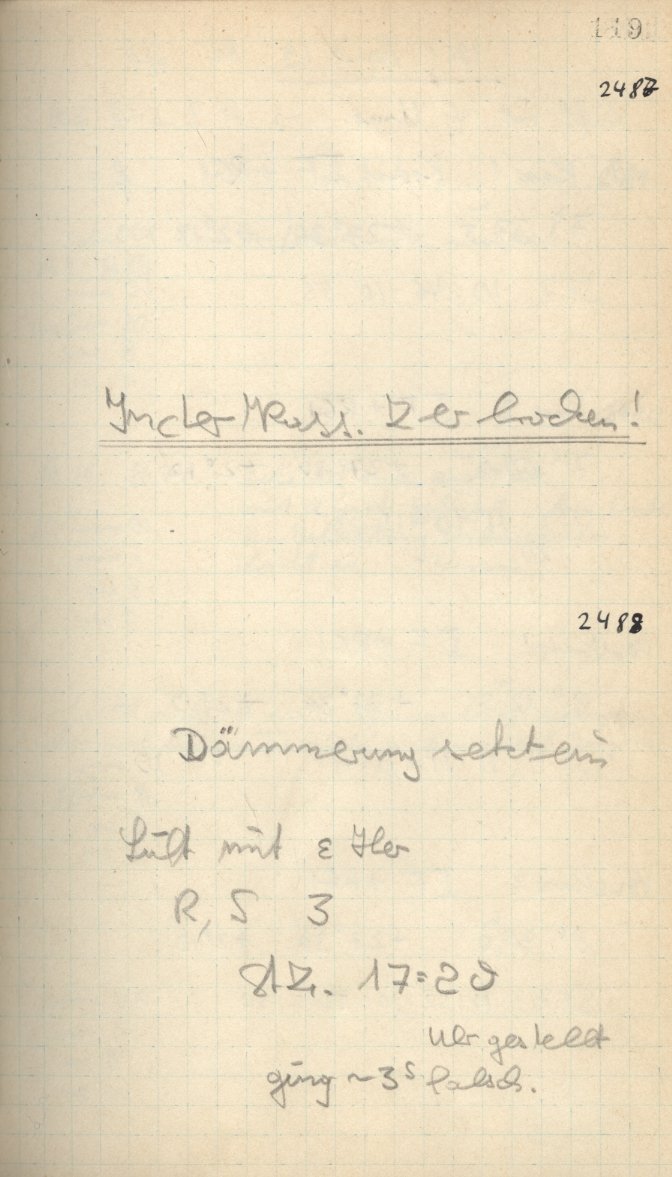 119
2487
In der Kass. zerbrochen!
2488
Dämmerung setzt ein
Luft mit ε Her
R, S 3
StZ. 17:20
Uhr gestellt
ging ~ 3s falsch.